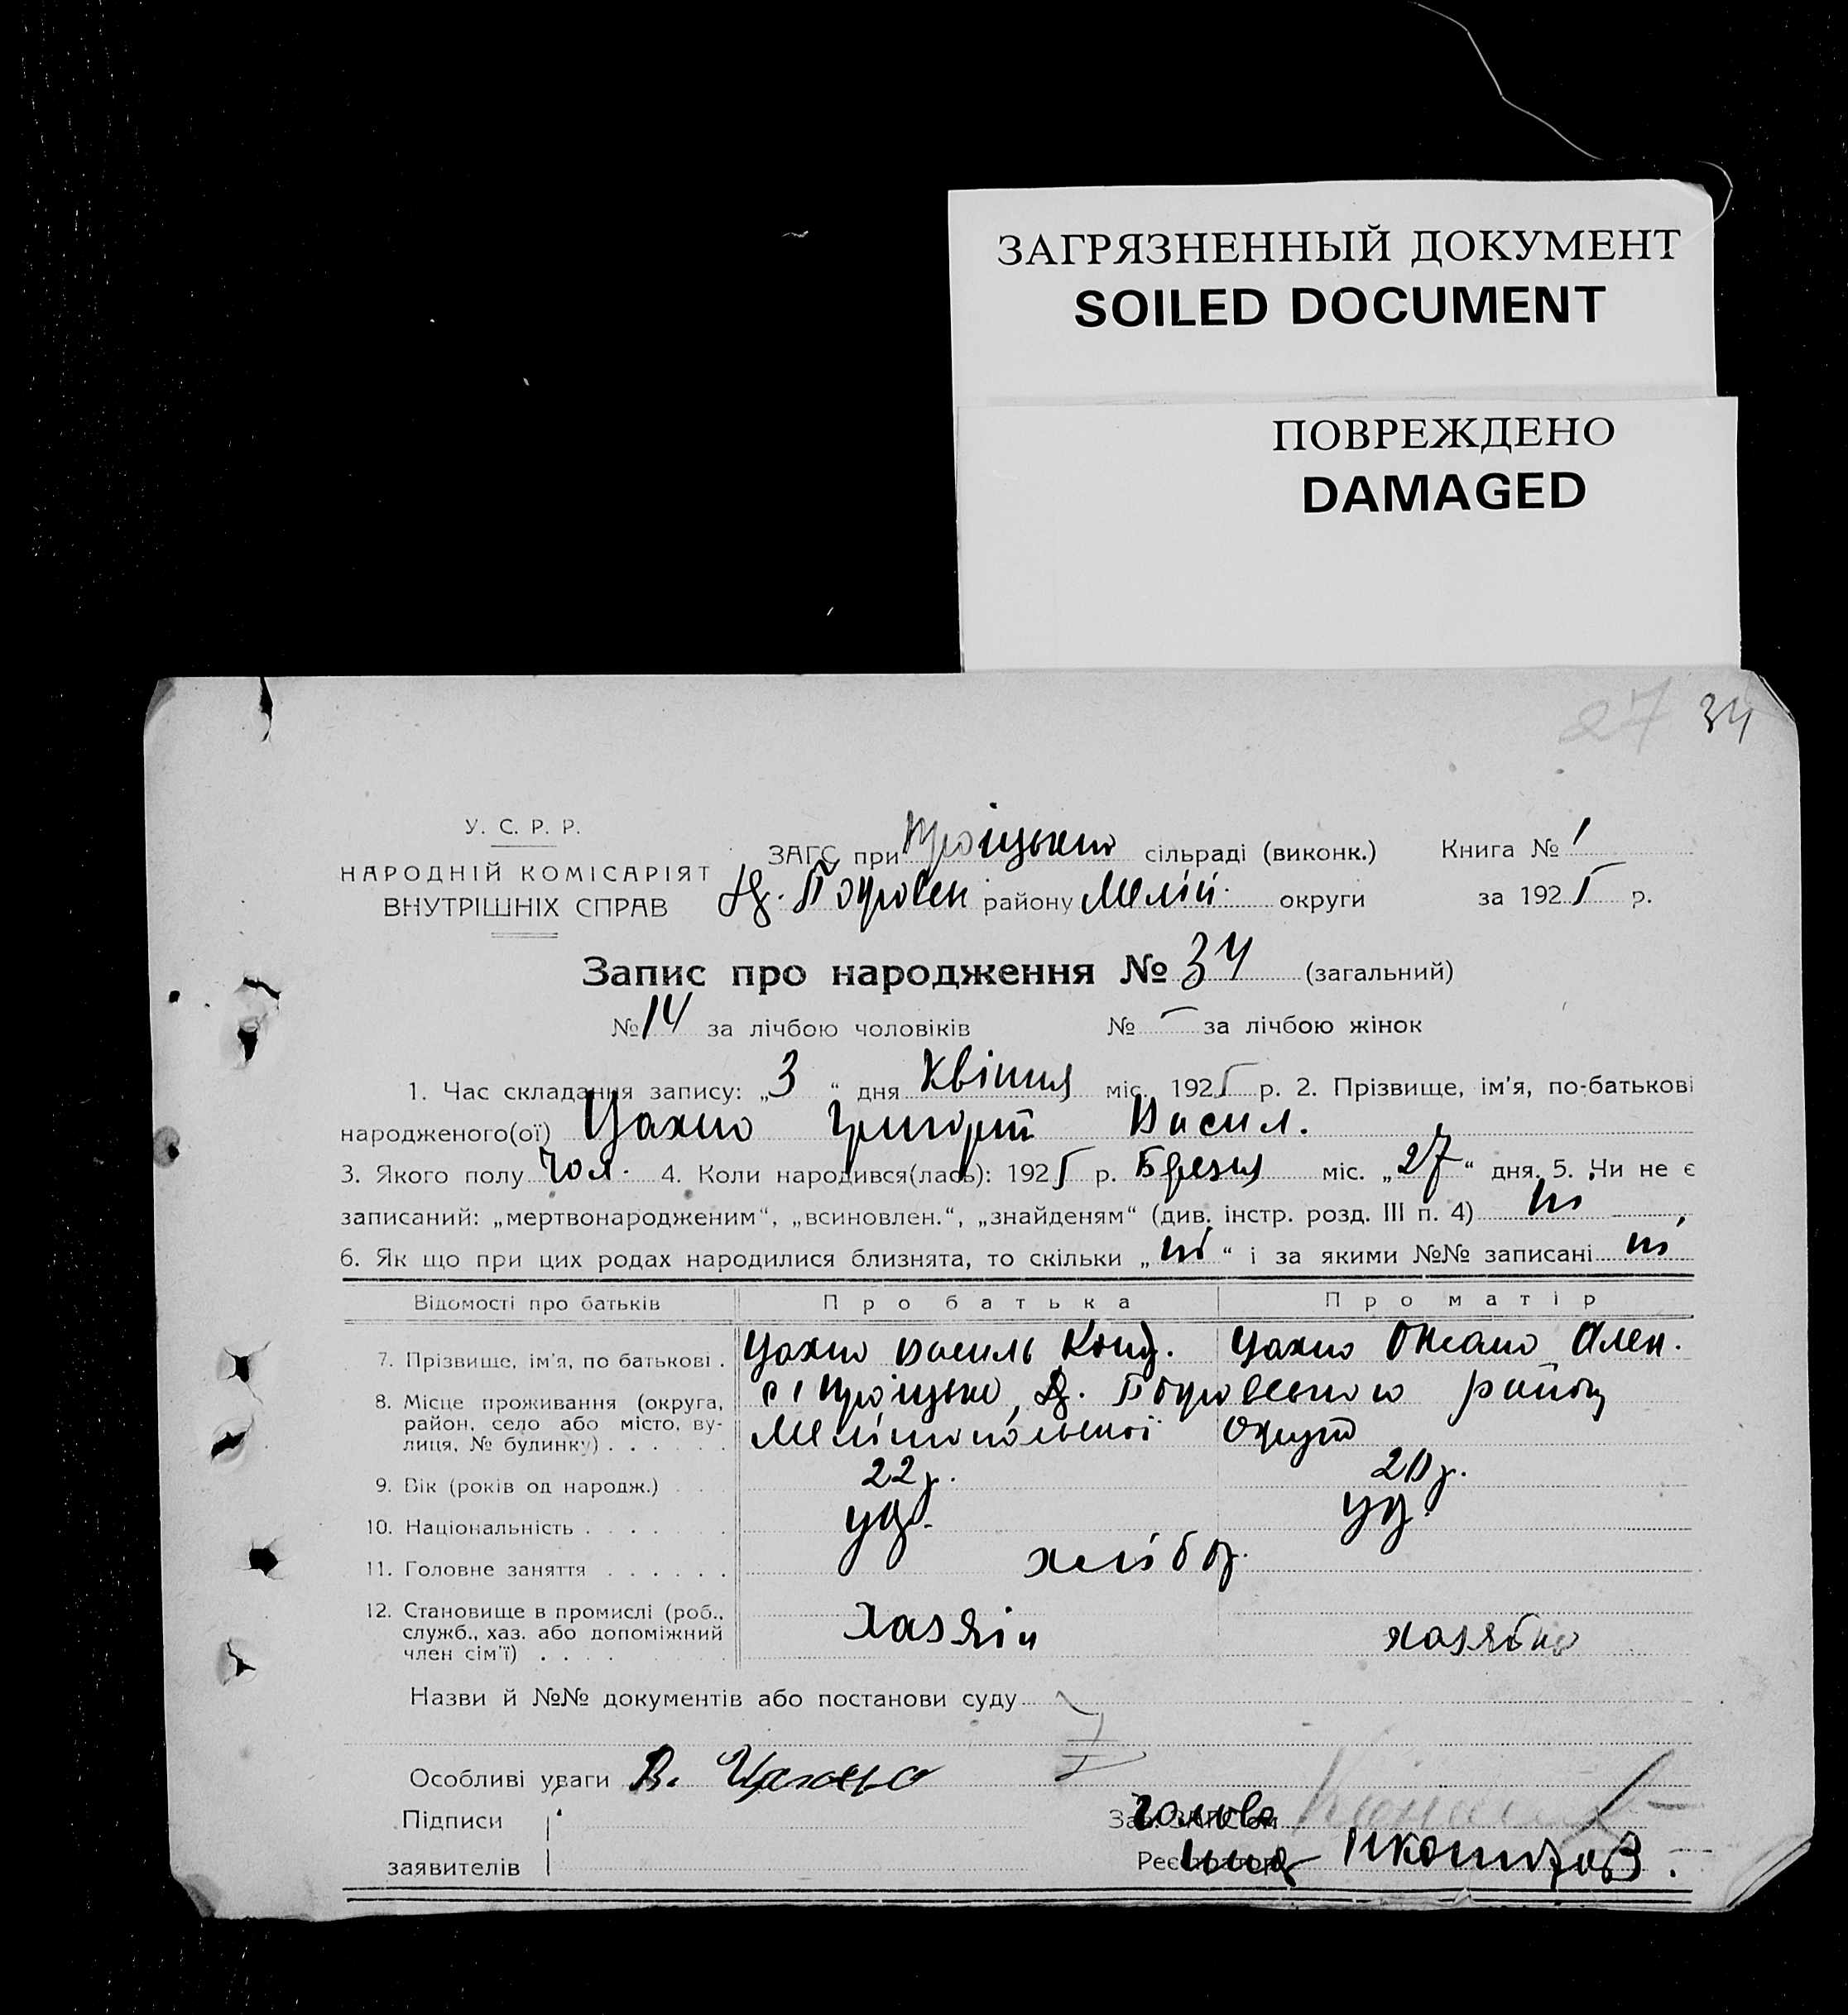 ЗАГРЯЗНЕННЫЙ ДОКУМЕНТ
SOILED DOCUMENT
ПОВРЕЖДЕНО
DAMAGED
27 34
У. С. Р. Р.
НАРОДНІЙ КОМІСАРІЯТ
ВНУТРІШНІХ СПРАВ
ЗАГС при Троіцькій сільраді (виконк.) Книга № 1
Покровськ району Меліт. округи за 1925 р.
Запис про народження № 34 (загальний)
№ 14 за лічбою чоловіків № – за лічбою жінок
1. Час складання запису: „3“ дня Квітня міс. 1925 р. 2. Прізвище, ім'я, по-батькові
народженого(ої) Цахно Григорій Васил.
3. Якого полу Чол. 4. Коли народився(лась): 1925 р. Березня міс. „27“ дня. 5. Чи не є
записаний: „мертвонародженим“, „всиновлен.“, „знайденям“ (див. інстр. розд. III п. 4) ні
6. Як що при цих родах народилися близнята, то скільки „ні“ і за якими №№ записані ні
Відомості про батьків Про батька Про матір
7. Прізвище, ім'я, по батькові . Цахно Василь Конд. Цахно Оксана Олек.
8. Місце проживання (округа,
район, село або місто, ву-
лиця, № будинку) . . . . . .
с. Троіцьке, Покровського району
Мелітопольської Округи
9. Вік (років од народж.) . . . 22 р. 20 р.
10. Національність . . . . . укр. укр.
11. Головне заняття . . . . . . хлібор.
12. Становище в промислі (роб.,
служб., хаз. або допоміжний
член сім'ї) . . . .
Хазяін хазяйка
Назви й №№ документів або постанови суду
Особливі уваги В. Цахно
Підписи
заявителів
Зав. ЗАГС'ом Голова
Реєстратор